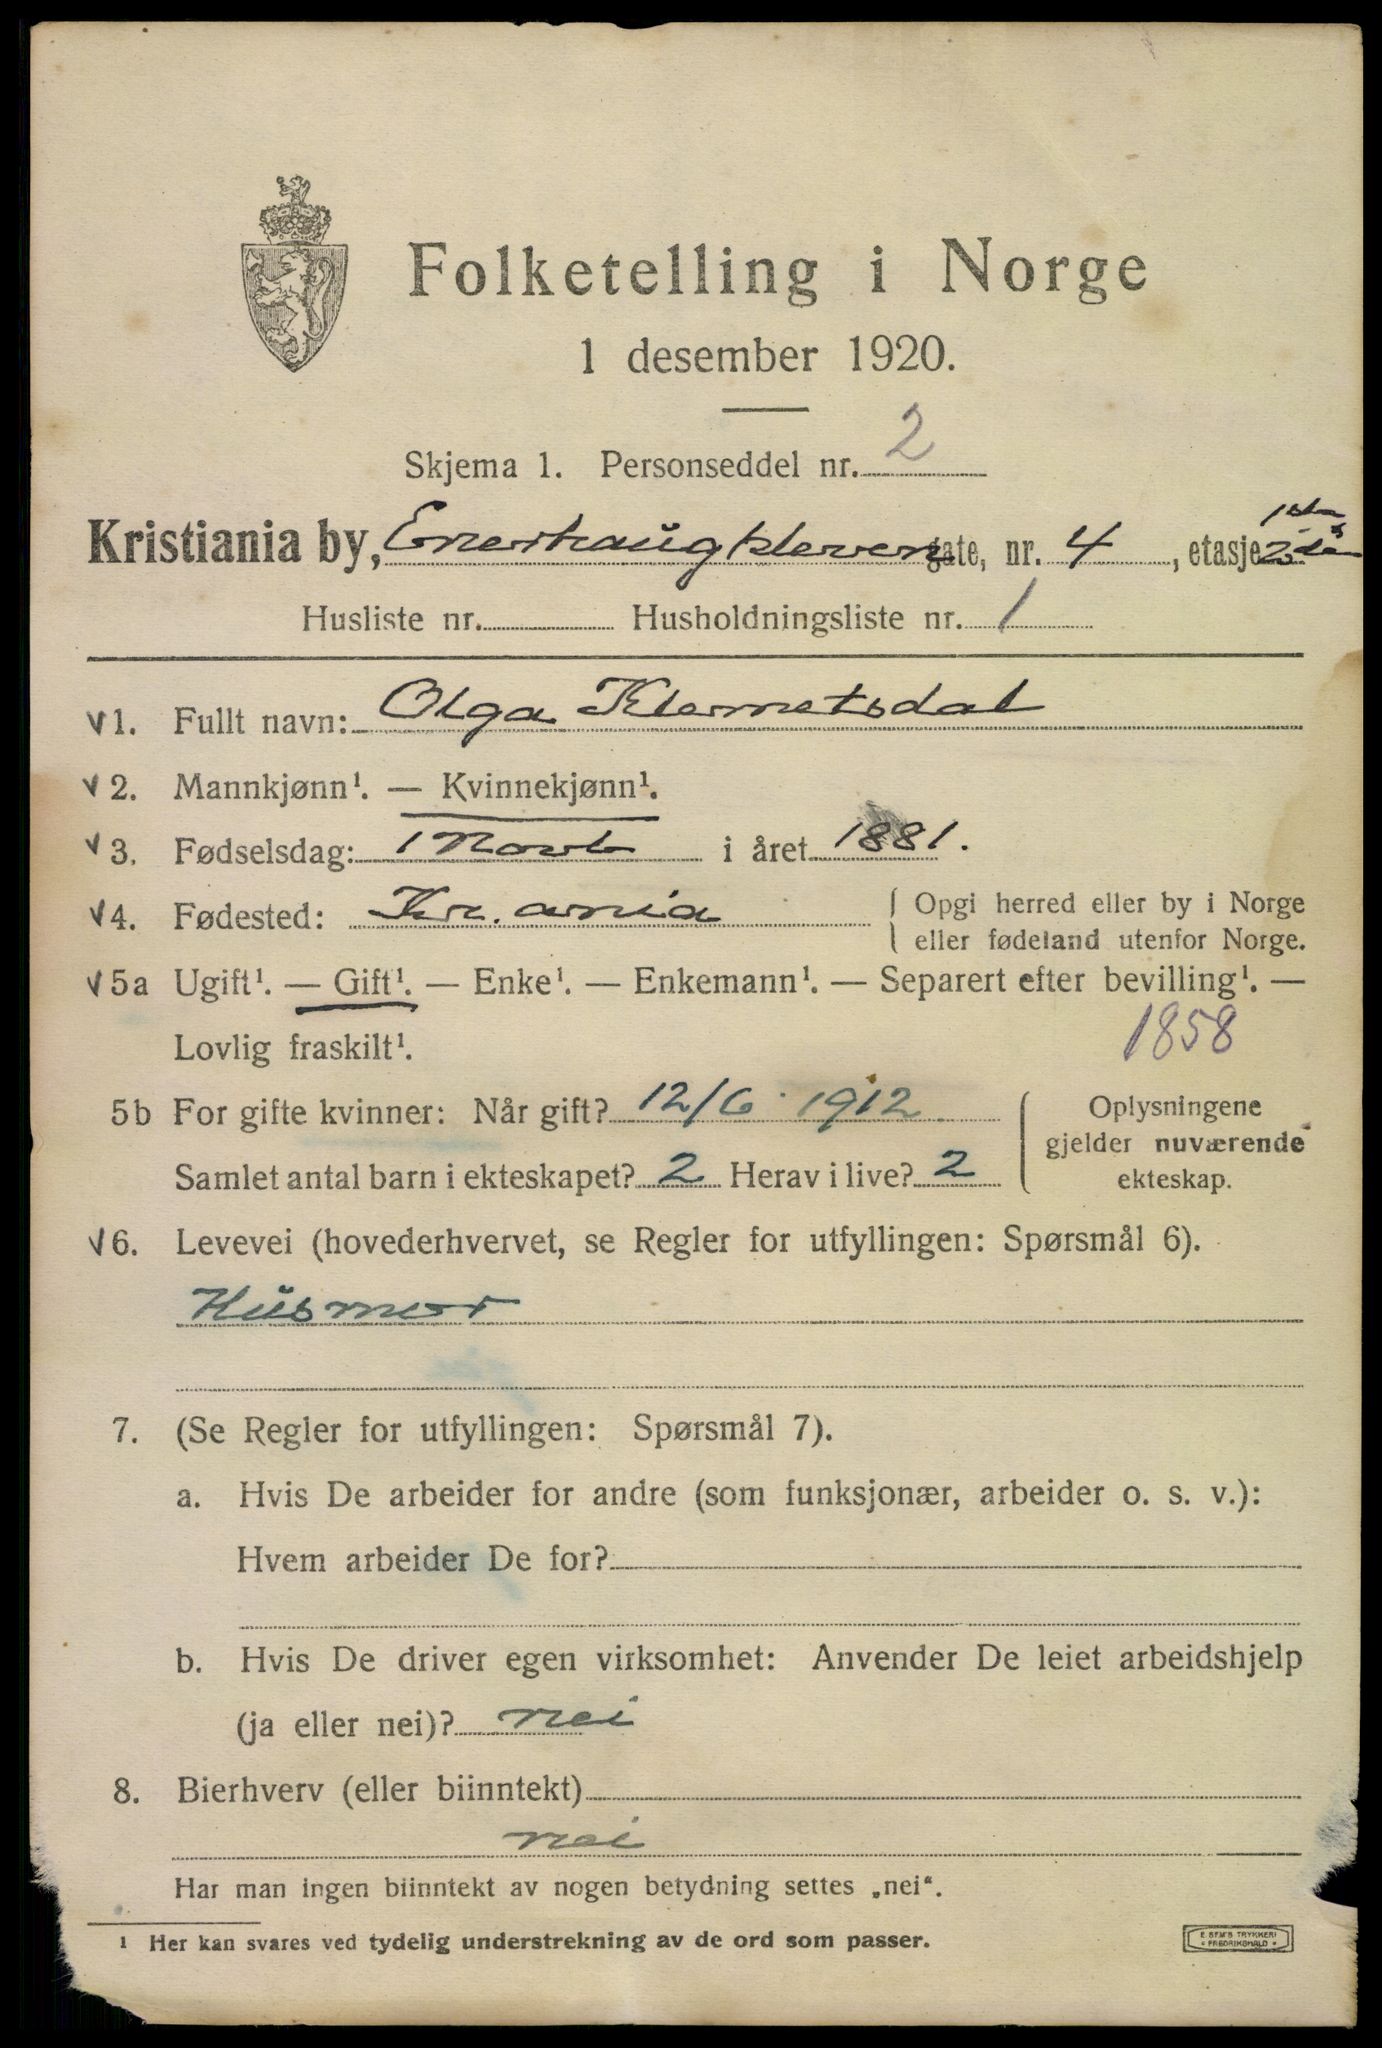 Folketelling i Norge
1 desember 1920.
Skjema 1. Personseddel nr. 2
1ste
Kristiania by, Enerhaugklevengate, nr. 4, etasje 2de
Husliste nr. Husholdningsliste nr. 1
v 1. Fullt navn: Olga Klemetsdal
v 2. Mannkjønn¹. — Kvinnekjønn¹.
v 3. Fødselsdag: 1 Novb i året 1881.
v 4. Fødested: Kr.ania { Opgi herred eller by i Norge
eller fødeland utenfor Norge.
v 5a Ugift¹. — Gift¹. — Enke¹. — Enkemann¹. — Separert efter bevilling¹. —
Lovlig fraskilt¹. 1858
5b For gifte kvinner: Når gift? 12/6 1912 { Oplysningene
gjelder nuværende
Samlet antal barn i ekteskapet? 2 Herav i live? 2 ekteskap.
v 6. Levevei (hovederhvervet, se Regler for utfyllingen: Spørsmål 6).
Husmor
7. (Se Regler for utfyllingen: Spørsmål 7).
a. Hvis De arbeider for andre (som funksjonær, arbeider o. s. v.):
Hvem arbeider De for?
b. Hvis De driver egen virksomhet: Anvender De leiet arbeidshjelp
(ja eller nei)? nei
8. Bierhverv (eller biinntekt)
nei
Har man ingen biinntekt av nogen betydning settes „nei“.
¹ Her kan svares ved tydelig understrekning av de ord som passer.
E. SEM'S TRYKKERI
FREDRIKSHALD